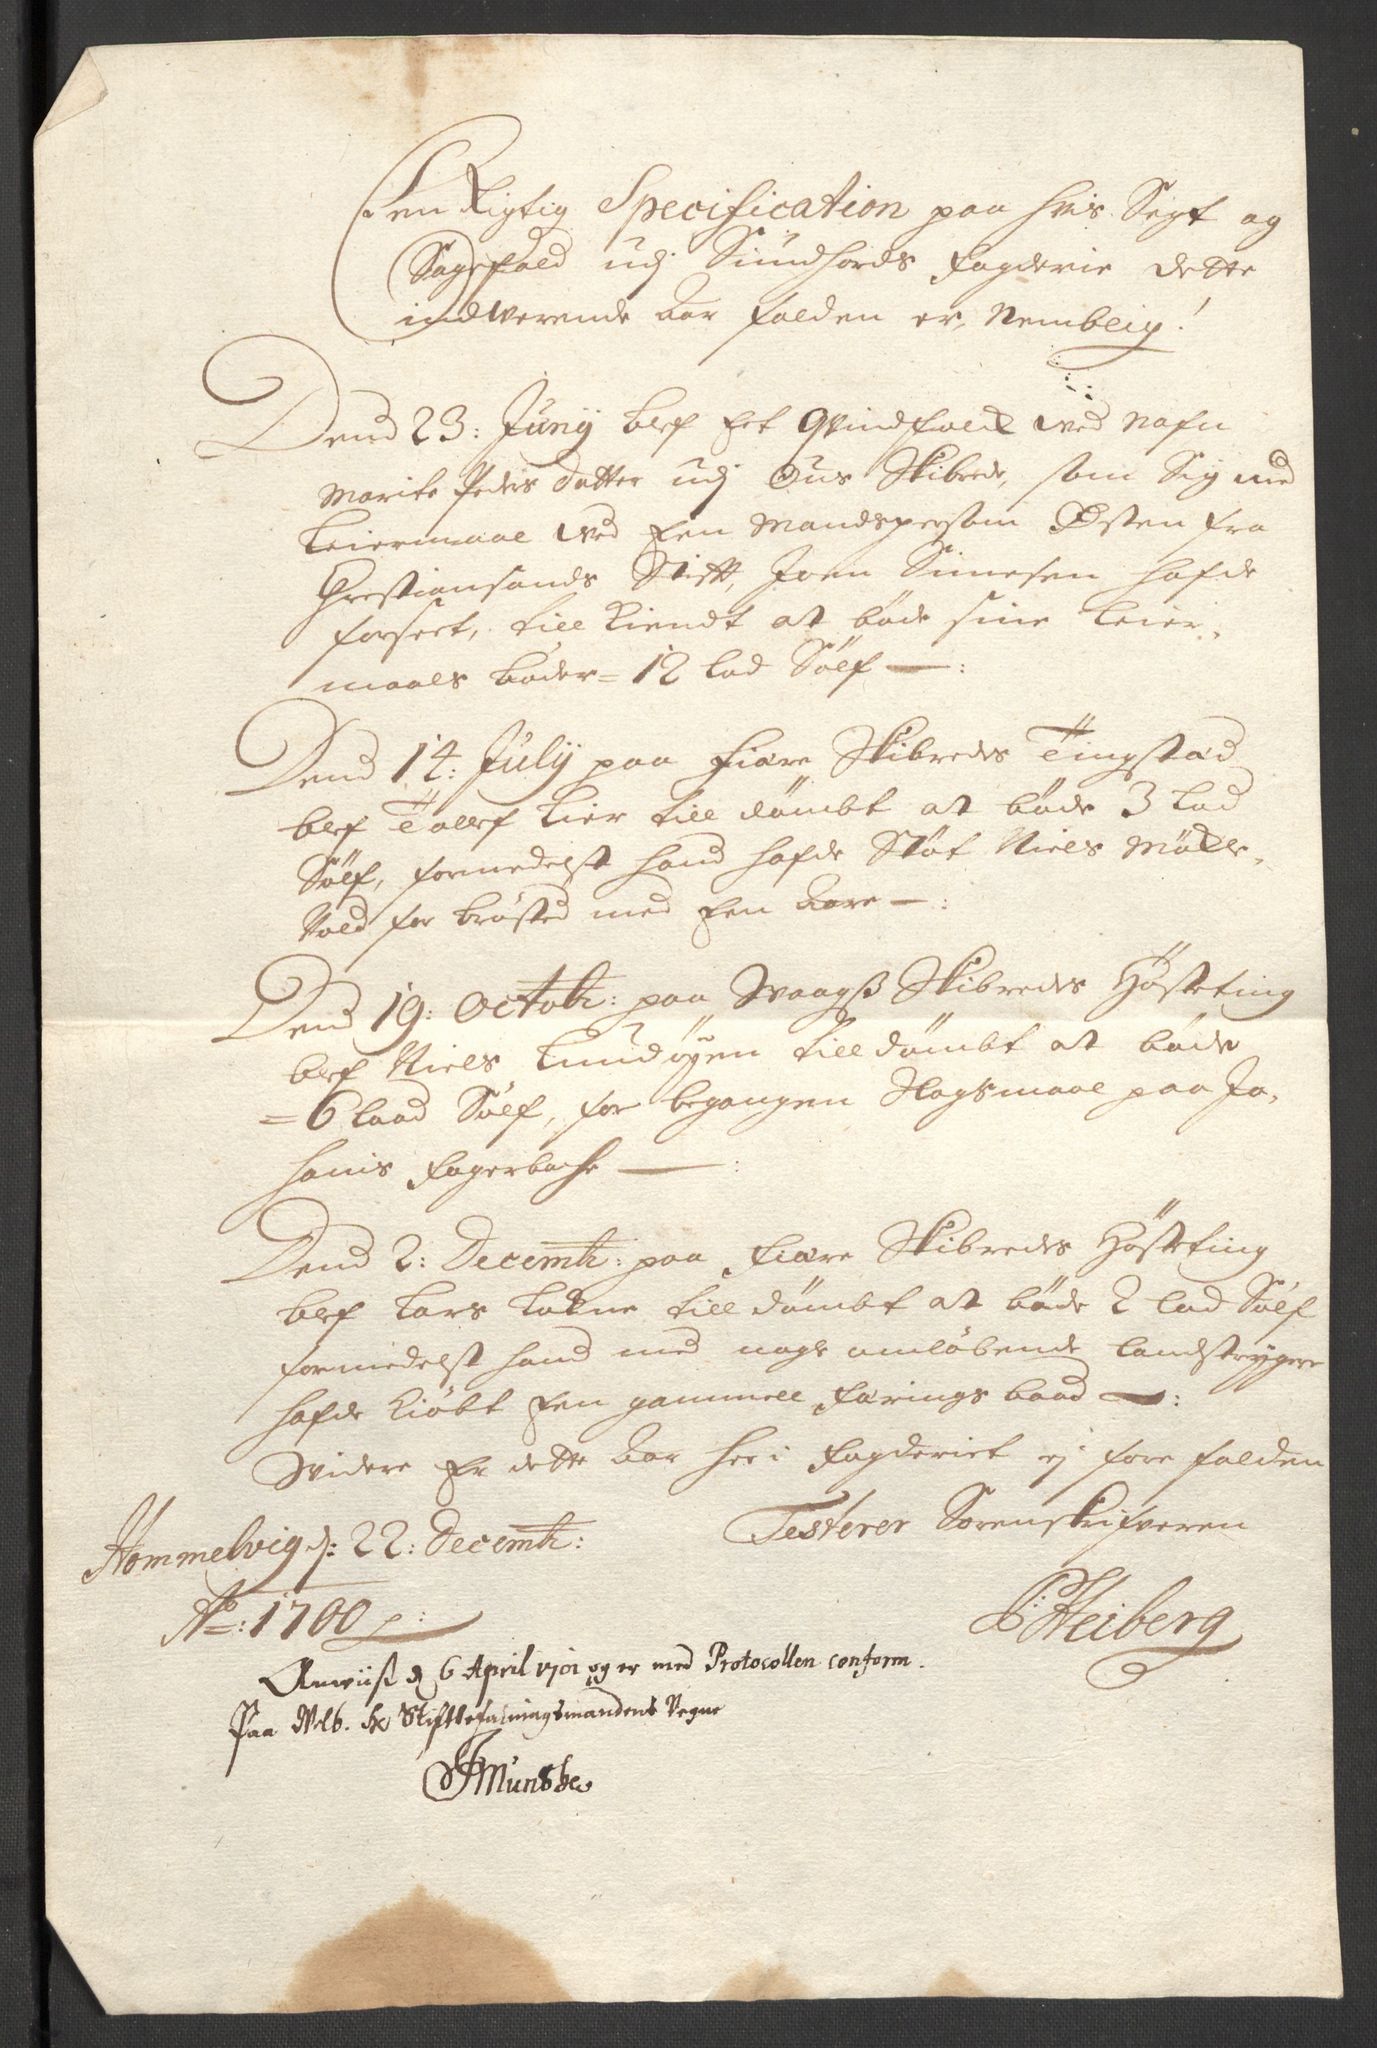 Een Rigtig Specification paa hvis Sigt og
Sagefald udj Sundhords fogderie dette
indverende Aar falden er, Nemblig!
Dend 23: Junij blef Eet Qvindfolck ved Nafn
Marite Peders datter udj Ous Skibrede, som Sig med
Leiermaal ved Een Mandsperson Østen fra
Christiansands Stift, Joen Simesen hafde
forseet, till kiendt at bøde sine Leier,
maals bøder = 12 lod Sølf —:
Dend 14: Julij paa Fiære Skibredes Tingstæd
blef Tollef Lier till dømbt at bøde 3 lod
Sølf, formedelst hand hafde Støt Niels Møkle,
Vold for brøsted med Een Aare —:
Dend 19: Octobr: paa Waagß Skibredes Høsteting
blef Niels Lundøÿen till dømbt at bøde
= 6 laad Sølf, for begangen Slagsmaal paa Jo,
hanis Fagerbache —:
Dend 2: Decembr: paa Fiære Skibredes Høsteting
blef Lars Løkne till dømbt at bøde 2 lod Sølf
formedelst hand med nogle omløbende landstrygere
hafde kiøbt Een gammell Færings baad —:
Widere Er dette Aar her i fogderiet ej fore falden
Hommelvig d: 22: Decembr: Testerer Sorenskrifveren
Ao: 1700 Heiberg
Anviist d 6 April 1701 og er med Protocollen conform.
Paa Velb. Hr Stiftbefalningsmandens Vegne
Munthe